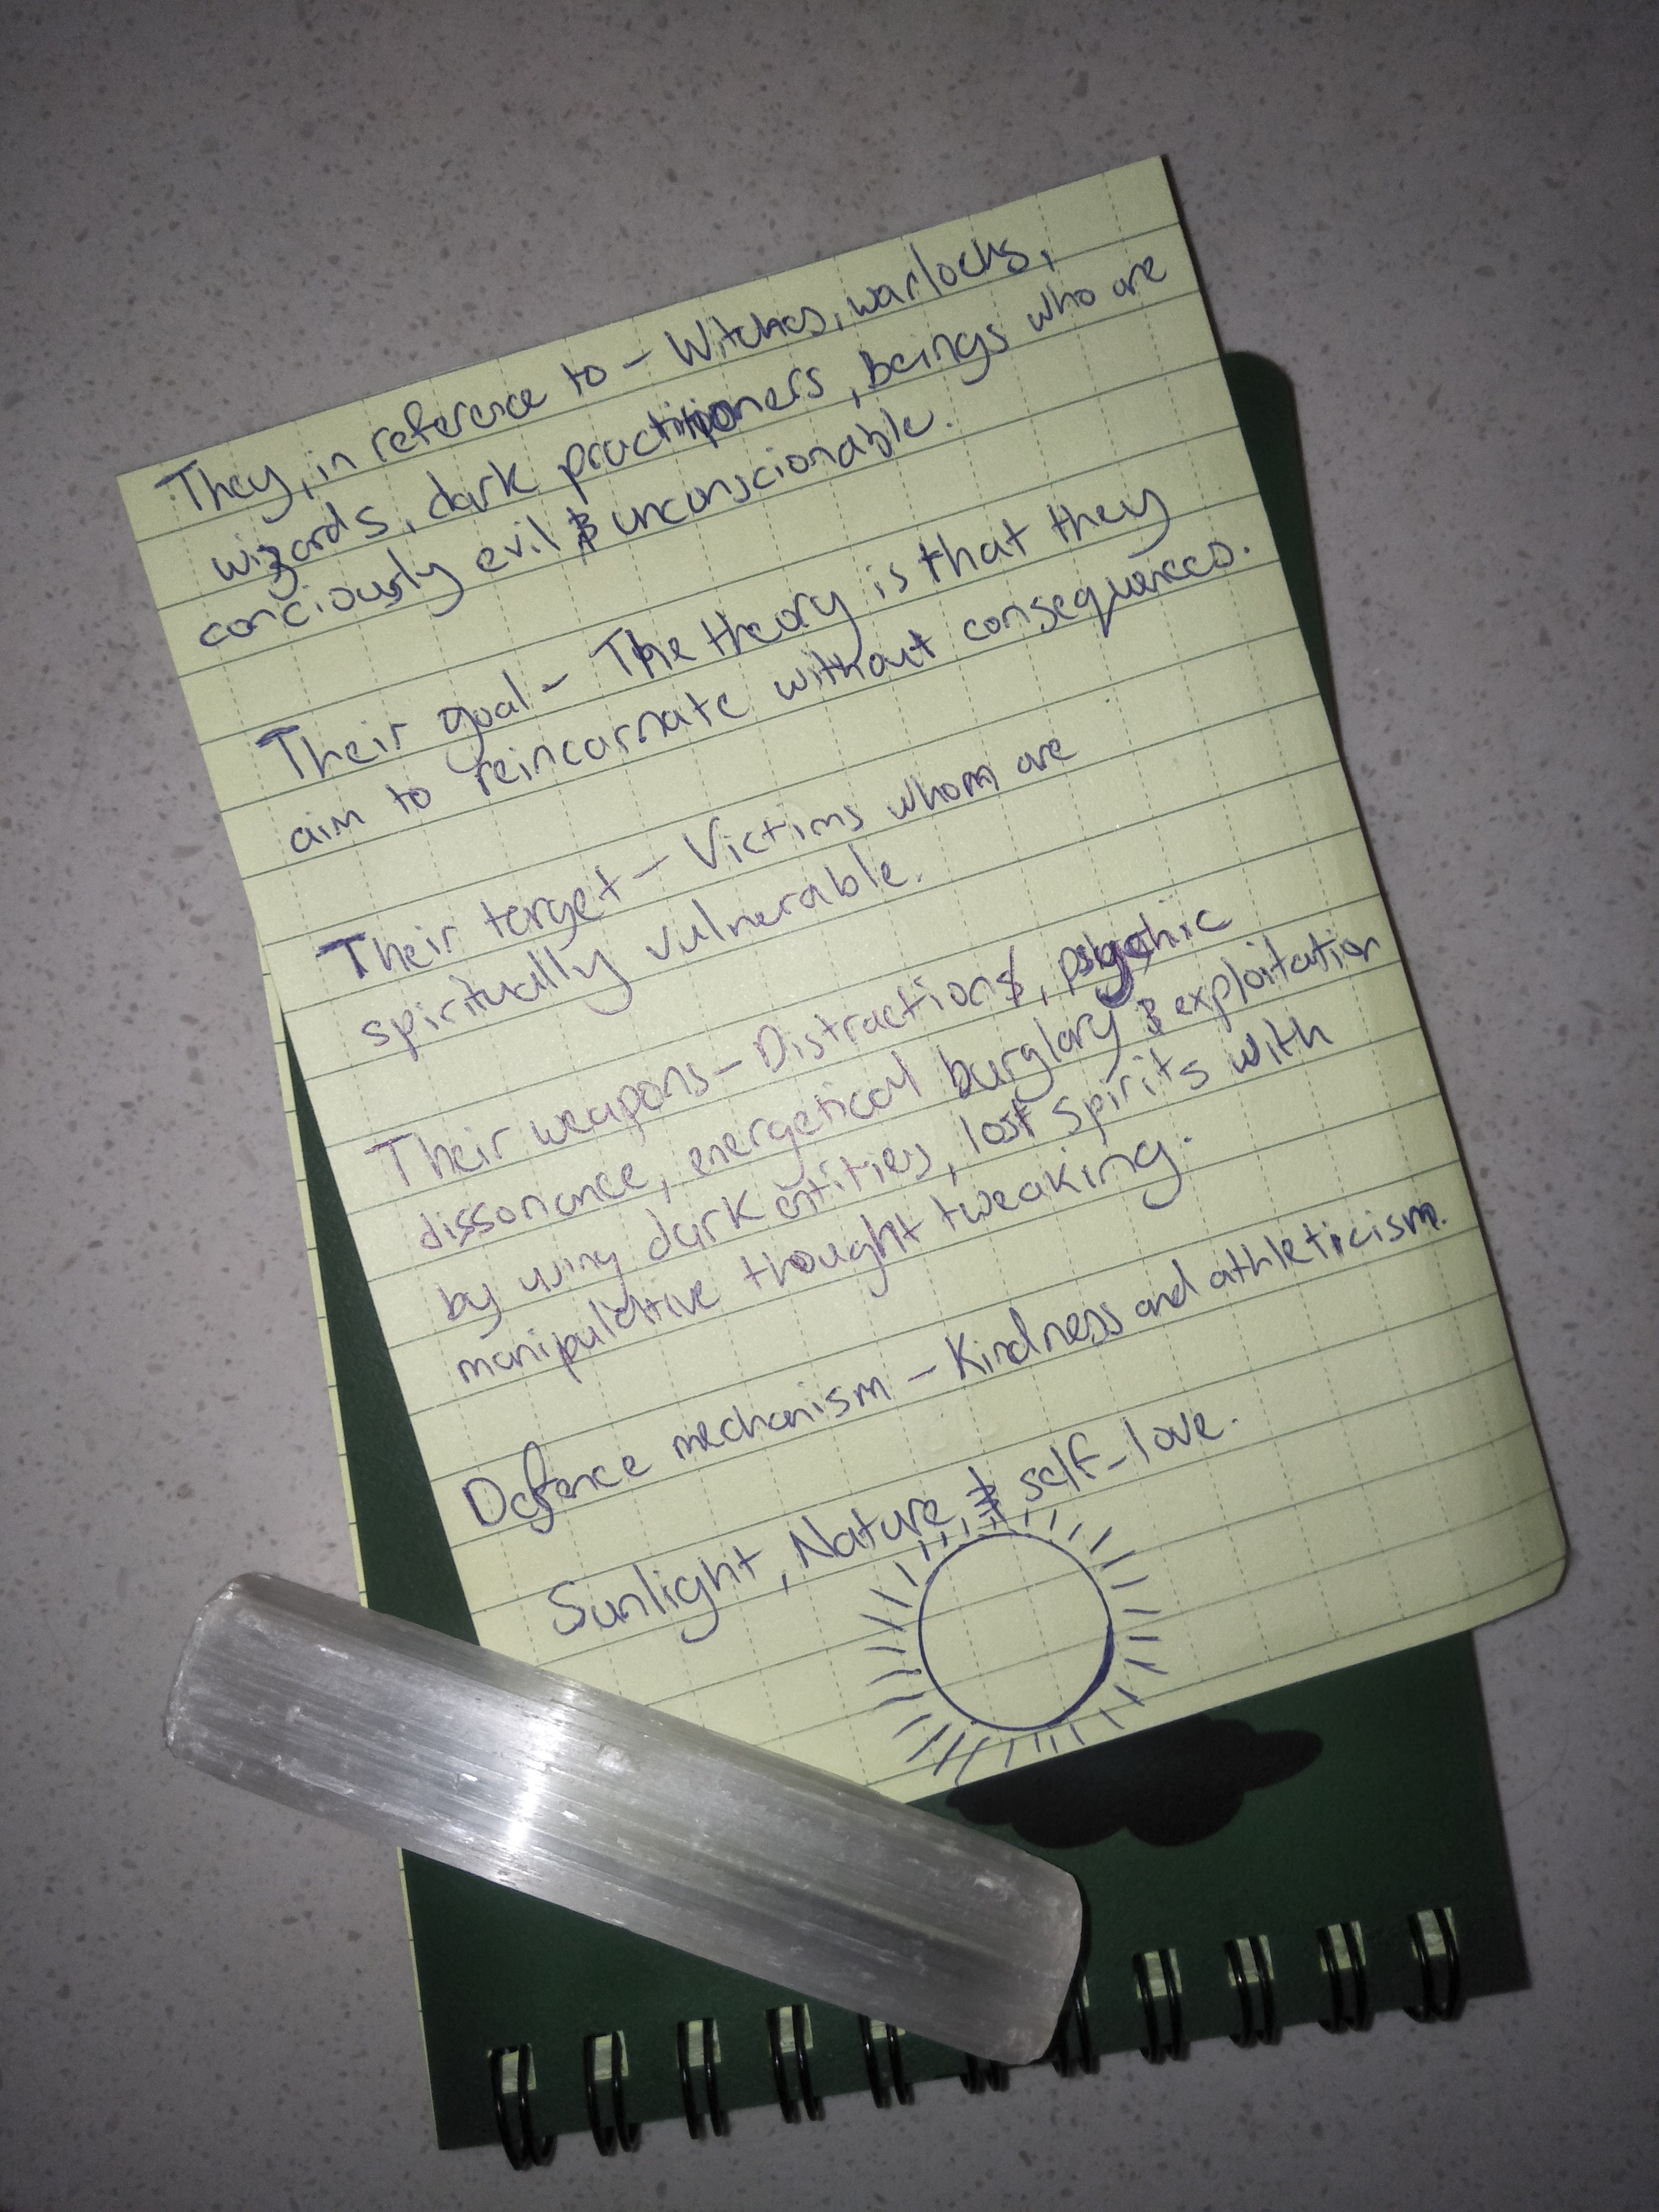 They, in reference to - Witches, warlocks,
wizards, dark practitioners, beings who are
conciously evil & unconscionable.
Their goal - The theory is that they
aim to reincarnate without consequences.
Their target - Victims whom are
spiritually vulnerable.
Their weapons - Distractions, psychic
dissonance, energetical burglary & exploitation
by using dark entities, lost spirits with
manipulative thought tweaking.
Defence mechanism - Kindness and athleticism.
Sunlight, Nature, & self-love.